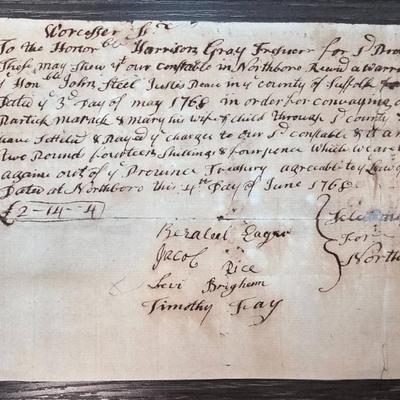 Worcesser Ss
To the Honor ble Harrison Gray Tresuerr for sd Prov
These may shew yt our constable in Northboro Recivd a warran
ye Hon ble John Steel Justis Peace in ye county of Suffolk
Dated ye 3d Day of may 1768 in order for convaying of
Partick marick & mary his wife & child through sd county
have settled & Payd ye charges to our sd constable & it am
two Pound fourteen Shillings & four pence which we are
againe out of ye Province Treasury agreable to ye Law
Dated at Northboro this 4th Day of June 1768
£2-14-4
Bezaleel Eager
Jacob Rice
Levi Brigham
Timothy Fay
Selectmen
For
North